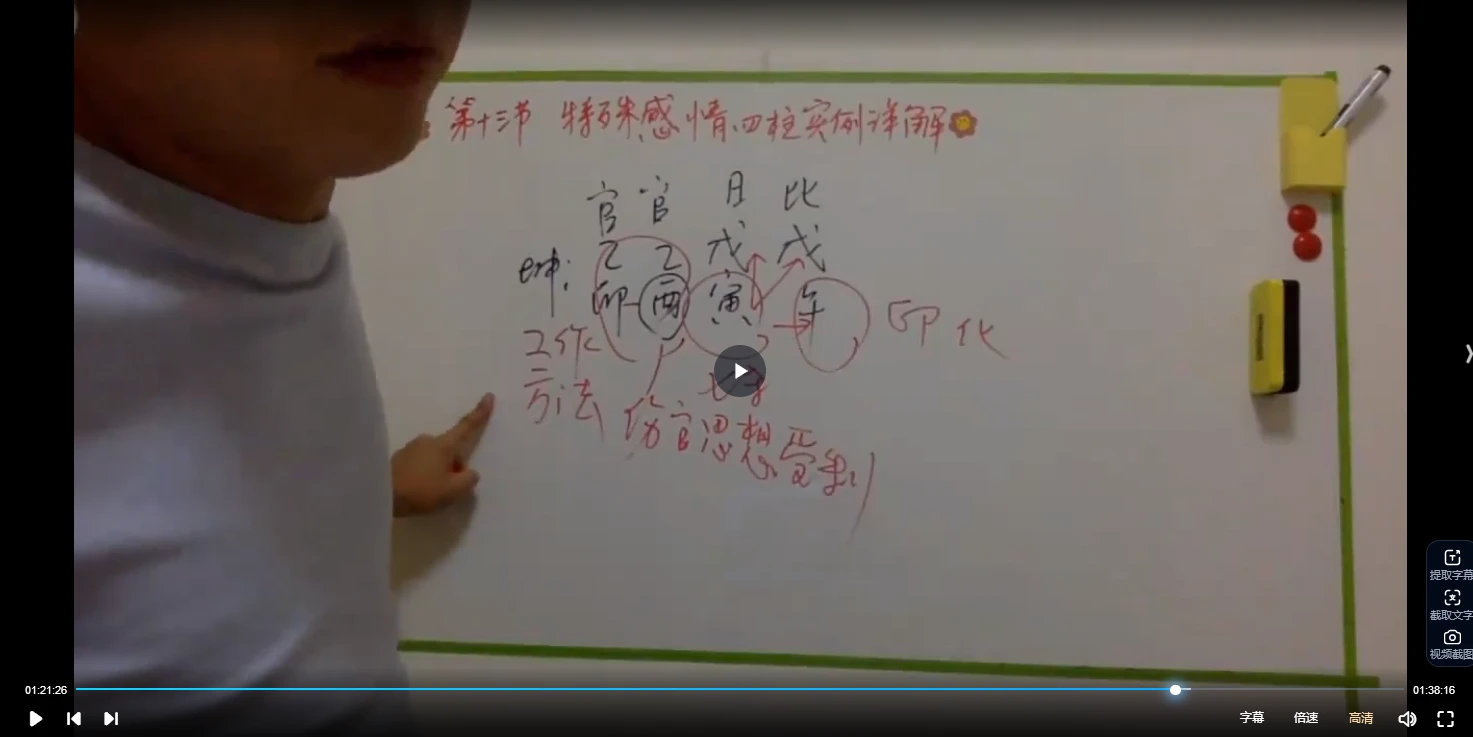 第十三节 特殊感情四柱实例详解
官 官 日 比
坤: 乙 乙 戊 戊
卯 酉 寅 午 印 化
工作
方法
七子
伤官思想受制
提取字幕
截取文字
视频截图
01:21:26
01:38:16
字幕 倍速 高清